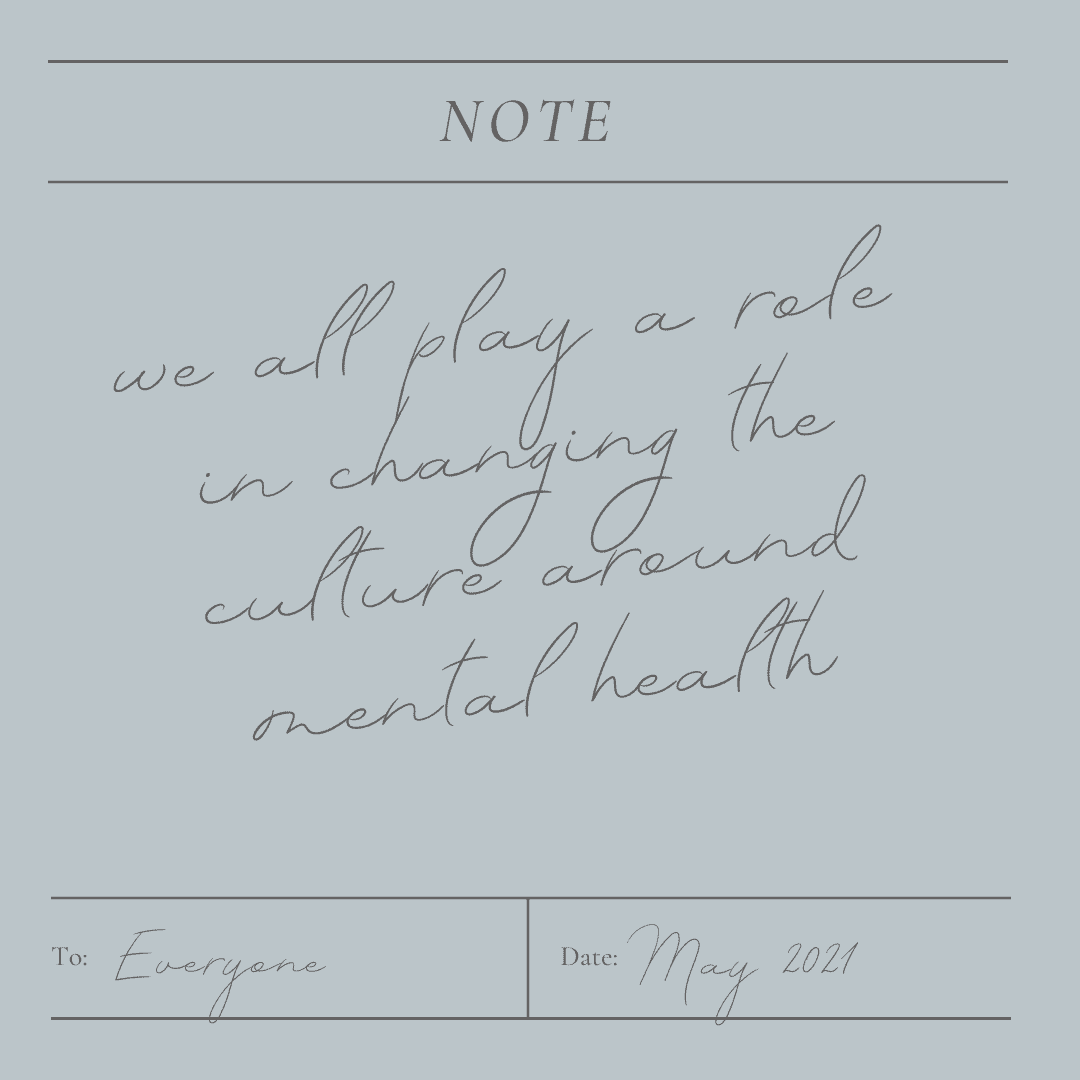 NOTE
we all play a role
in changing the
culture around
mental health
To: Everyone
Date: May 2021